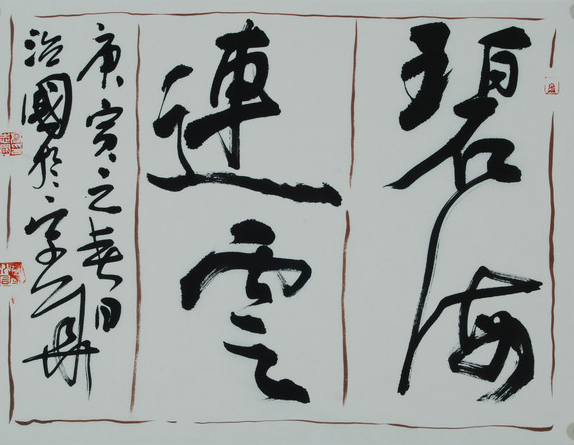 碧海
連雲
庚寅之春月
治國於京華